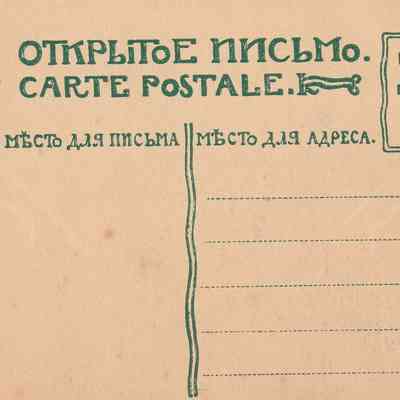 ОТКРЫТОЕ ПИСЬМО.
CARTE POSTALE.
МѢСТО ДЛЯ ПИСЬМА
МѢСТО ДЛЯ АДРЕСА.